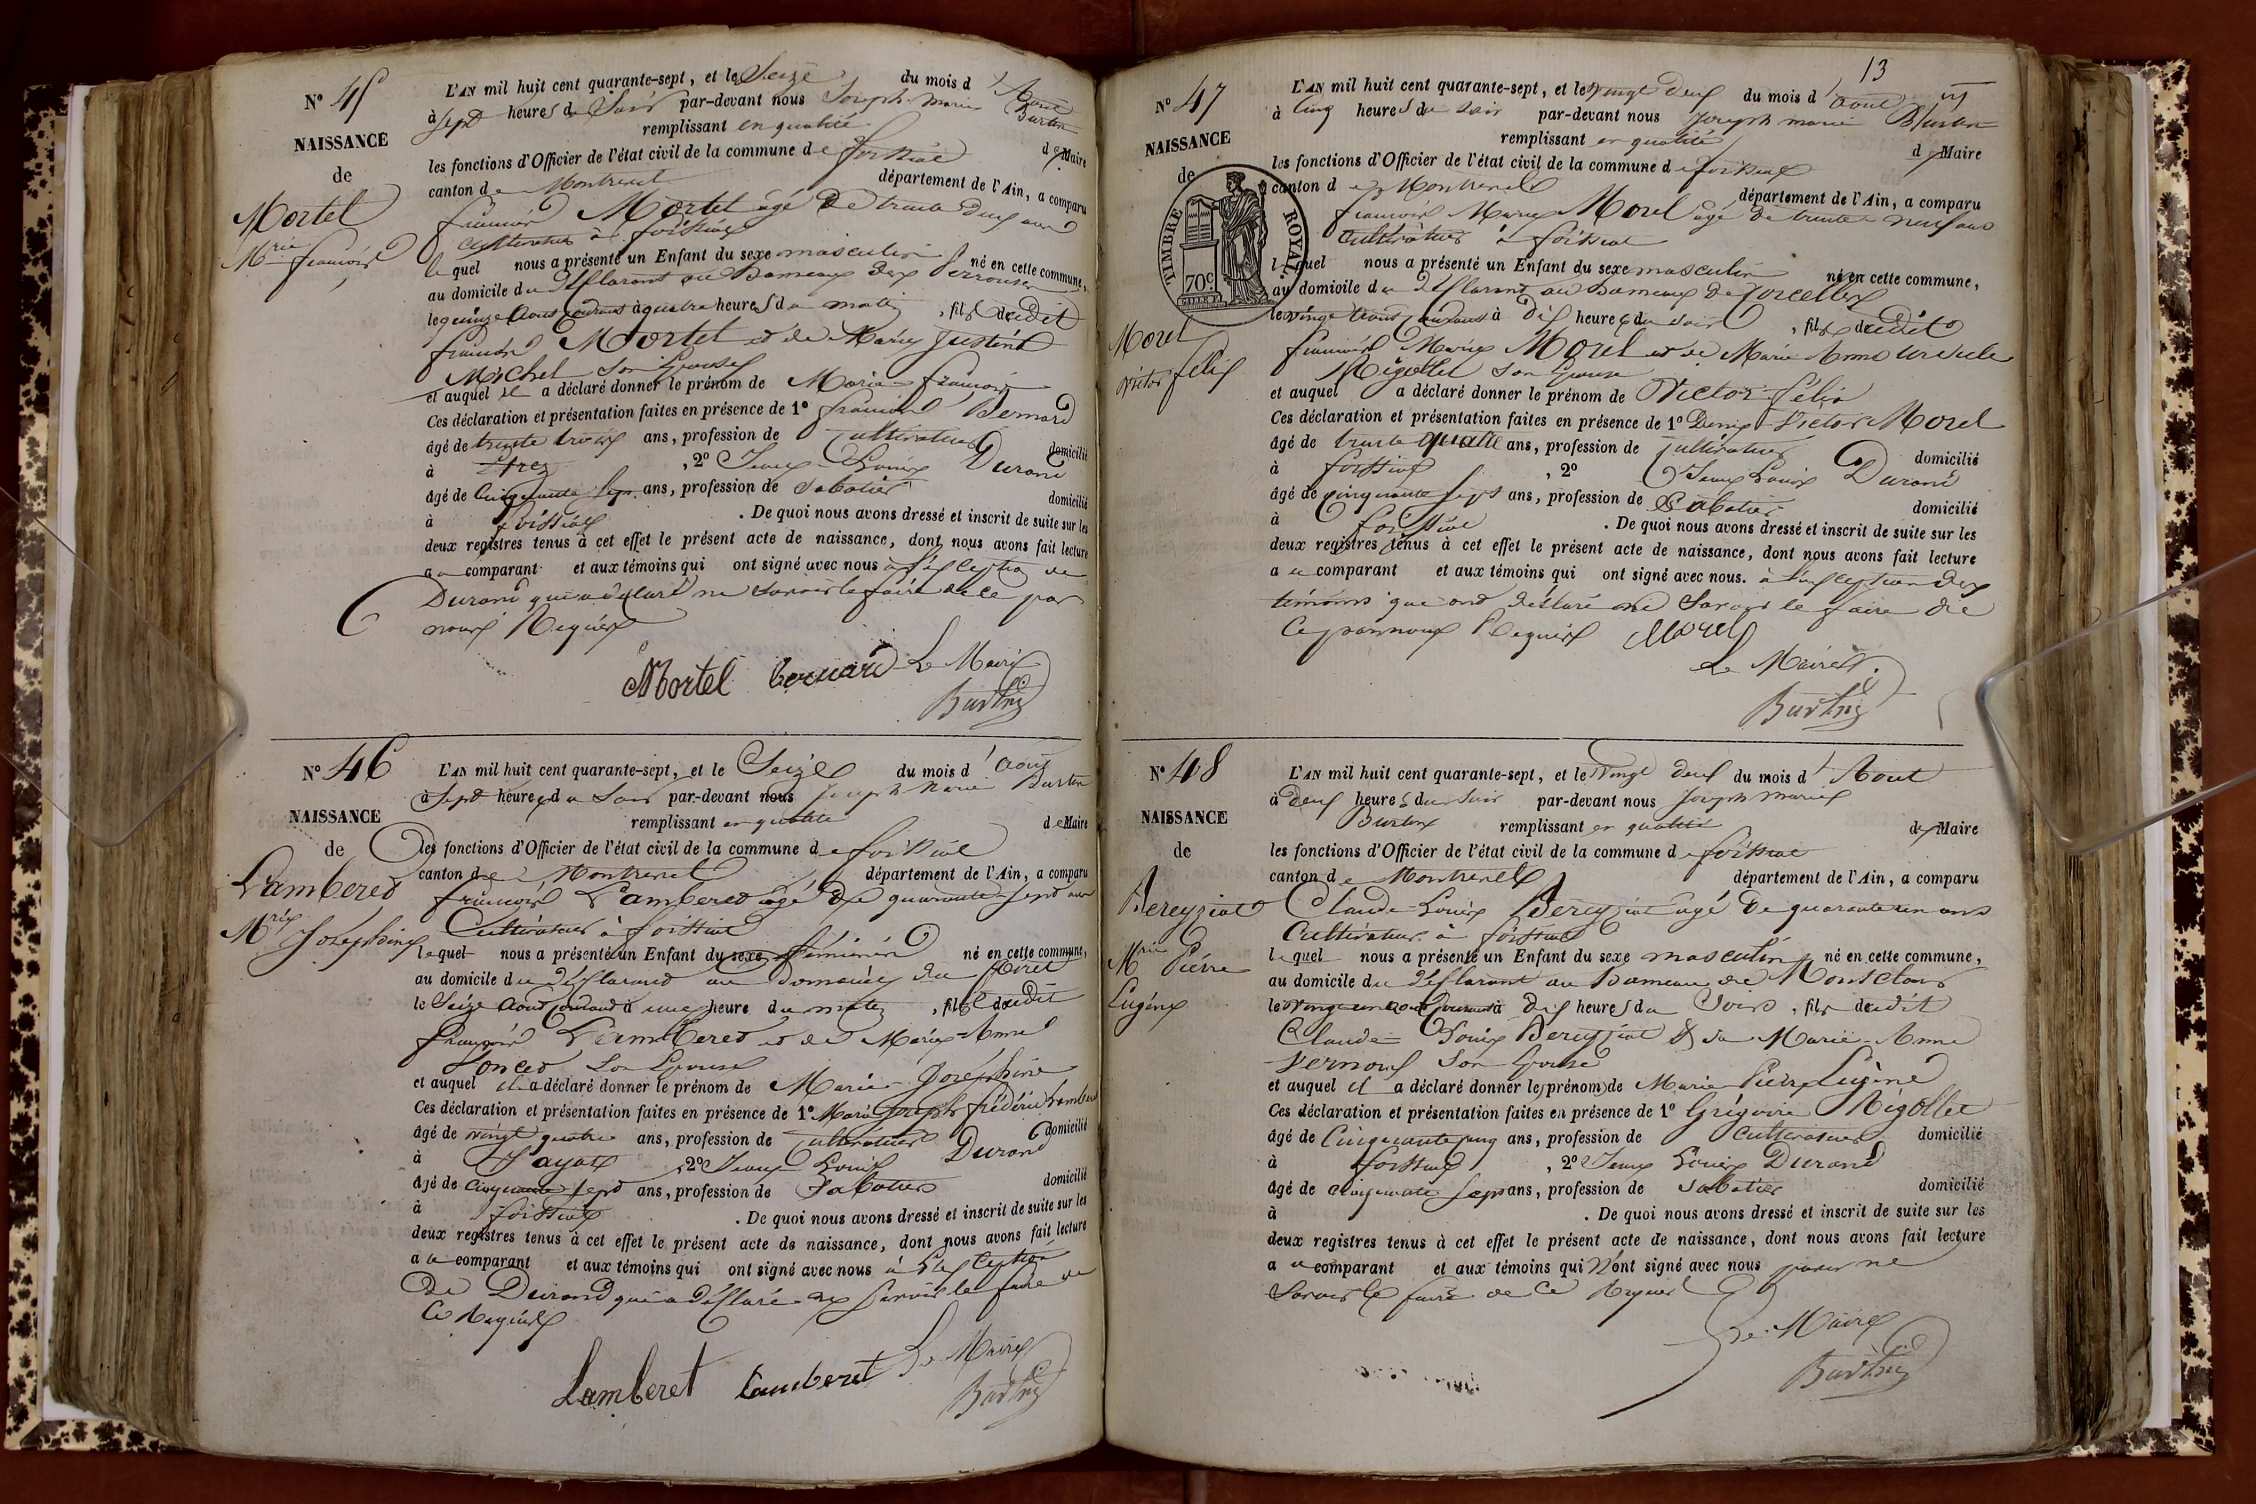 N° 45
NAISSANCE
de
Mortel
Mrie françois
L'AN mil huit cent quarante-sept, et le Seize du mois d'Aout
à sept heures du Soir par-devant nous Joseph Marie Burtin
remplissant en qualité de Maire
les fonctions d'Officier de l'état civil de la commune de foissiat
canton de Montrevel département de l'Ain, a comparu
françois Mortel agé De trente Deux ans
cultivateur à foissiat
lequel nous a présenté un Enfant du sexe masculin né en cette commune,
au domicile du déclarant au hameau des
le quinze Aout courant à quatre heures du matin, fils dudit
françois Mortel et de Marie Justine
Michel Son Epouse
et auquel il a déclaré donner le prénom de Marie françois
Ces déclaration et présentation faites en présence de 1° françois Bernard
âgé de trente trois ans, profession de Cultivateur domicilié
à Etrez, 2° Jean Louis Durand
âgé de Cinquante sept ans, profession de Sabotier domicilié
à foissiat. De quoi nous avons dressé et inscrit de suite sur les
deux registres tenus à cet effet le présent acte de naissance, dont nous avons fait lecture
au comparant et aux témoins qui ont signé avec nous à l'exception de
Durand qui a déclaré ne savoir le faire de ce par
nous Requis
Mortel Bernard Le Maire
Burtin
N° 46
NAISSANCE
de
Lamberet
Mrie Joséphine
L'AN mil huit cent quarante-sept, et le Seize du mois d'Aout
à Sept heures du Soir par-devant nous Joseph Marie Burtin
remplissant en qualité de Maire
les fonctions d'Officier de l'état civil de la commune de foissiat
canton de Montrevel département de l'Ain, a comparu
françois Lamberet agé De quarante sept ans
Cultivateur à foissiat
lequel nous a présenté un Enfant du sexe féminin né en cette commune,
au domicile du déclarant au Domaine du
le Seize Aout courant à une heure du matin, fils dudit
françois Lamberet et de Marie-Anne
Poncet Son Epouse
et auquel il a déclaré donner le prénom de Marie Joséphine
Ces déclaration et présentation faites en présence de 1° Marie Joseph frédéric Lamberet
âgé de vingt quatre ans, profession de Cultivateur domicilié
à Jayat, 2° Jean Louis Durand
âgé de Cinquante sept ans, profession de Sabotier domicilié
à foissiat. De quoi nous avons dressé et inscrit de suite sur les
deux registres tenus à cet effet le présent acte de naissance, dont nous avons fait lecture
au comparant et aux témoins qui ont signé avec nous à l'exception
De Durand qui a déclaré ne savoir le faire de
Ce Requis
Lamberet Lamberet Le Maire
Burtin
13
N° 47
NAISSANCE
de
TIMBRE ROYAL
70c
Morel
victor felix
L'AN mil huit cent quarante-sept, et le vingt deux du mois d'aout
à Cinq heures du soir par-devant nous Joseph marie Burtin
remplissant en qualité de Maire
les fonctions d'Officier de l'état civil de la commune de foissiat
canton de Montrevel département de l'Ain, a comparu
françois Marie Morel agé de trente neuf ans
Cultivateur à foissiat
lequel nous a présenté un Enfant du sexe masculin né en cette commune,
au domicile du déclarant au hameau De
le courant à Dix heures du soir, fils dudit
françois Marie Morel et de Marie Anne Ursule
Rigollet son Epouse
et auquel a déclaré donner le prénom de Victor félix
Ces déclaration et présentation faites en présence de 1° Denis Victor Morel
âgé de trente quatre ans, profession de Cultivateur domicilié
à foissiat, 2° Jean Louis Durand
âgé de cinquante sept ans, profession de Sabotier domicilié
à foissiat. De quoi nous avons dressé et inscrit de suite sur les
deux registres tenus à cet effet le présent acte de naissance, dont nous avons fait lecture
au comparant et aux témoins qui ont signé avec nous. à l'exception des
témoins qui ont déclaré ne Savoir le faire de
Ce par nous Requis Morel
Le Maire
Burtin
N° 48
NAISSANCE
de
Bereyziat
Mrie Pierre
Eugène
L'AN mil huit cent quarante-sept, et le Vingt deux du mois d'Aout
à Deux heures du Soir par-devant nous Joseph Marie
Burtin remplissant en qualité de Maire
les fonctions d'Officier de l'état civil de la commune de foissiat
canton de Montrevel département de l'Ain, a comparu
Claude-Louis Bereyziat agé De quarante un ans
Cultivateur à foissiat
lequel nous a présenté un Enfant du sexe masculin né en cette commune,
au domicile du déclarant au hameau de
le vingt un aout courant à Dix heures du Soir, fils dudit
Claude Louis Bereyziat & de Marie-Anne
Son Epouse
et auquel il a déclaré donner le prénom de Marie Pierre Eugène
Ces déclaration et présentation faites en présence de 1° Grégoire Rigollet
âgé de Cinquante cinq ans, profession de Cultivateur domicilié
à foissiat, 2° Jean Louis Durand
âgé de cinquante sept ans, profession de Sabotier domicilié
à . De quoi nous avons dressé et inscrit de suite sur les
deux registres tenus à cet effet le présent acte de naissance, dont nous avons fait lecture
au comparant et aux témoins qui N'ont signé avec nous pour ne
Savoir le faire de Ce Requis
Le Maire
Burtin